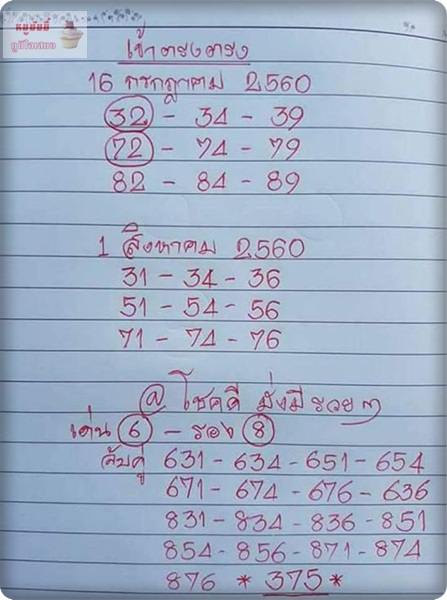 หมูอัมมี่
ภูมิใจเสนอ
เข้าตรงตรง
16 กรกฎาคม 2560
32 - 34 - 39
72 - 74 - 79
82 - 84 - 89
1 สิงหาคม 2560
31 - 34 - 36
51 - 54 - 56
71 - 74 - 76
@ โชคดี มั่งมี รวย ๆ
เด่น 6 - รอง 8
จับคู่ 631 - 634 - 651 - 654
671 - 674 - 676 - 636
831 - 834 - 836 - 851
854 - 856 - 871 - 874
876 * 375 *